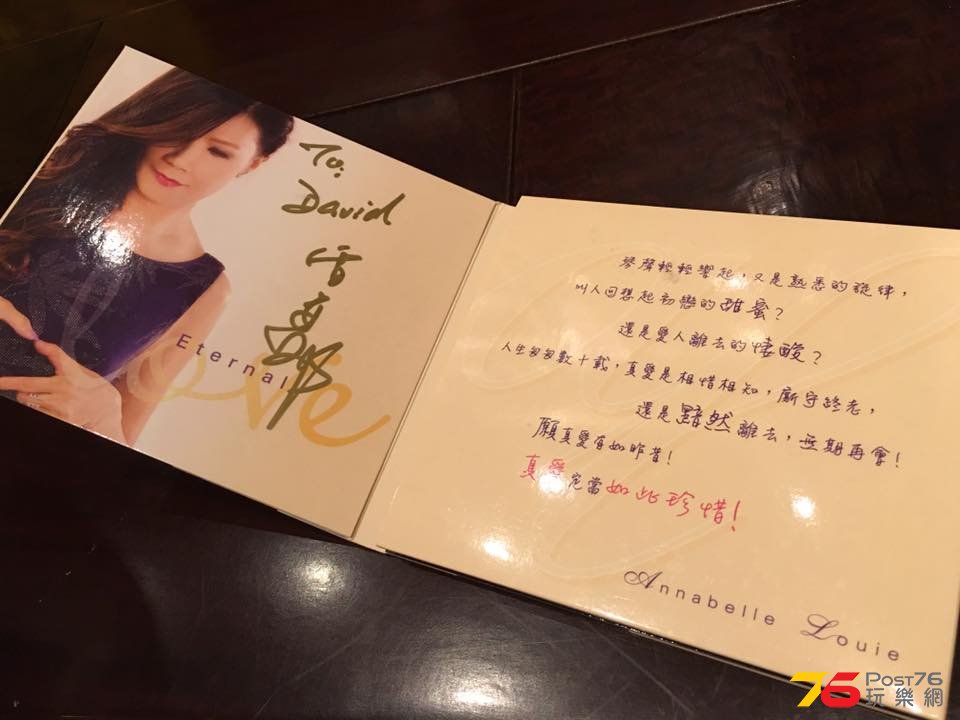 To:
David
Eternal
Love
琴聲輕輕響起，又是熟悉的旋律，
叫人回想起初戀的甜蜜？
還是愛人離去的悽酸？
人生匆匆數十載，真愛是相惜相知，廝守終老，
還是黯然離去，無期再會！
願真愛有如昨昔！
真愛定當如此珍惜！
Annabelle Louie
76 Post76
玩樂網